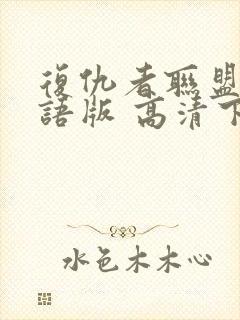 復仇者聯盟
語版 高清下
水色木木心